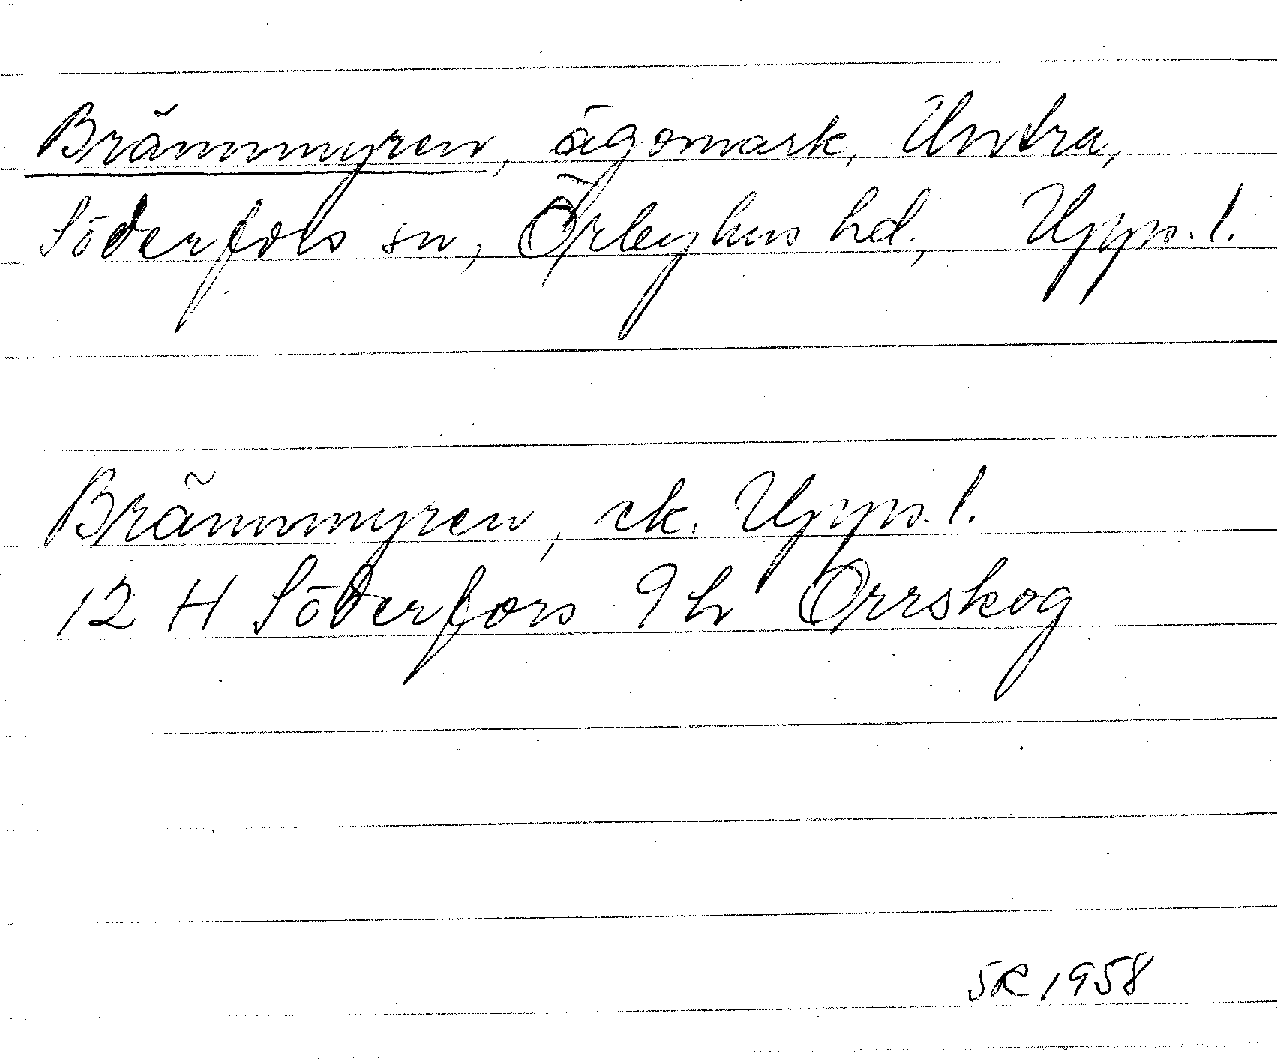 Brännmyren, ägomark, Untra,
Söderfors sn, Örbyhus hd, Upps. l.
Brännmyren, ek. Upps. l.
12 H Söderfors 9 h Orrskog
SR 1958